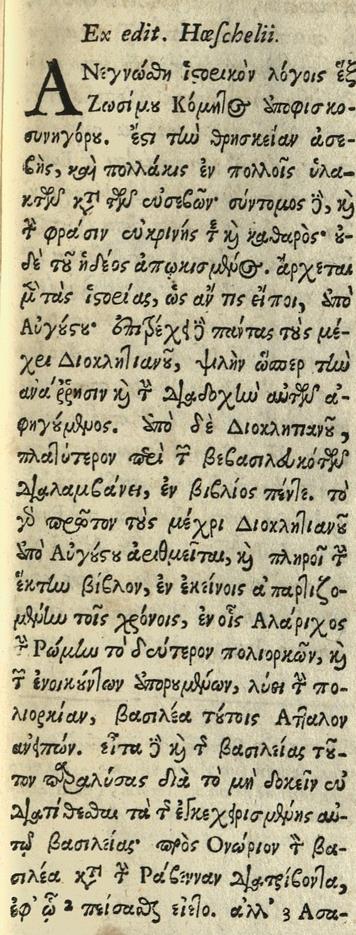 Ex edit. Hœschelii.
ΑΝεγνώσθη ἱστορικὸν λόγοις ἓξ
Ζωσίμου Κόμητος ἀποφισκο-
συνηγόρου. ἔστι τὴν θρησκείαν ἀσε-
βὴς, καὶ πολλάκις ἐν πολλοῖς ὑλα-
κτῶν κατὰ τῶν εὐσεβῶν· σύντομος δὲ, καὶ
τὴν φράσιν εὐκρινής τε καὶ καθαρός· οὐ-
δὲ τοῦ ἡδέος ἀπῳκισμένος. ἄρχεται
μὲν τὰς ἱστορίας, ὡς ἄν τις εἴποι, ἀπὸ
Αὐγούστου· ἐπιτρέχει δὲ πάντας τοὺς μέ-
χρι Διοκλητιανοῦ, ψιλὴν ὥσπερ τὴν
ἀνάῤῥησιν καὶ τὴν διαδοχὴν αὐτῶν ἀ-
φηγούμενος. ἀπὸ δὲ Διοκλητιανοῦ,
πλατύτερον περὶ τῶν βεβασιλευκότων
διαλαμβάνει, ἐν βιβλίοις πέντε. τὸ
γὰρ πρῶτον τοὺς μέχρι Διοκλητιανοῦ
ἀπὸ Αὐγούστου ἀριθμεῖται, καὶ πληροῖ τὴν
ἕκτην βίβλον, ἐν ἐκείνοις ἀπαρτιζο-
μένην τοῖς χρόνοις, ἐν οἷς Αλάριχος
τὴν Ρώμην τὸ δεύτερον πολιορκῶν, καὶ
τῶν ἐνοικούντων ἀπορουμένων, λύει τὴν πο-
λιορκίαν, βασιλέα τούτοις Ατταλον
ἀνειπών. εἶτα δὲ καὶ τῆς βασιλείας τοῦ-
τον παραλύσας διὰ τὸ μὴ δοκεῖν εὖ
διατίθεσθαι τὰ τῆς ἐγκεχειρισμένης αὐ-
τῷ βασιλείας· πρὸς Ονώριον τὸν βα-
σιλέα κατὰ τὴν Ράβενναν διατρίβοντα,
ἐφ' ᾧ 2 πείσασθαι εἰς το. ἀλλ' 3 Ασα-